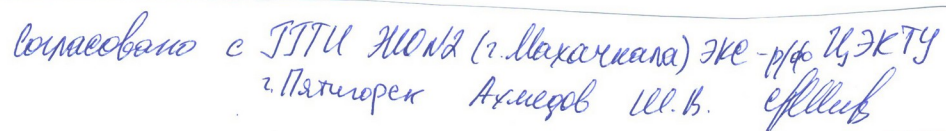 Согласовано с ГГТН ЖО№2 (г. Махачкала) ЭКС -р/ф ЦЭКТУ
г. Пятигорск Ахмедов Ш.В.